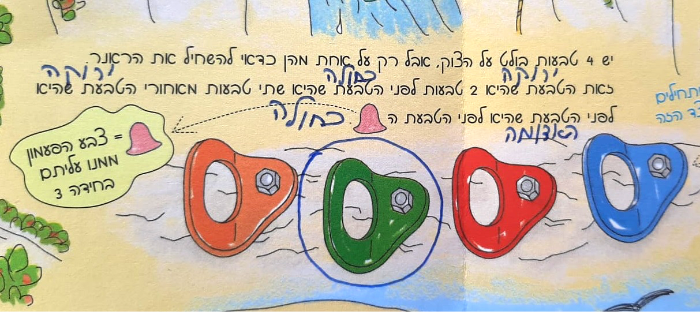 יש 4 טבעות בולט על הצוק, אבל רק על אחת מהן כדאי להשחיל את הראנר.
ירוקה כחולה ירוקה
זאת הטבעת שהיא 2 טבעות לפני הטבעת שהיא שתי טבעות מאחורי הטבעת שהיא
לפני הטבעת שהיא לפני הטבעת ה
כחולה
האדומה
= צבע הפעמון
ממנו עליתם
בחידה 3
הזה